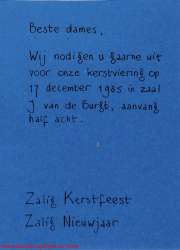 Beste dames,
Wij nodigen u gaarne uit
voor onze kerstviering op
17 december 1985 in zaal
J van de Burgt, aanvang
half acht.
Zalig Kerstfeest
Zalig Nieuwjaar